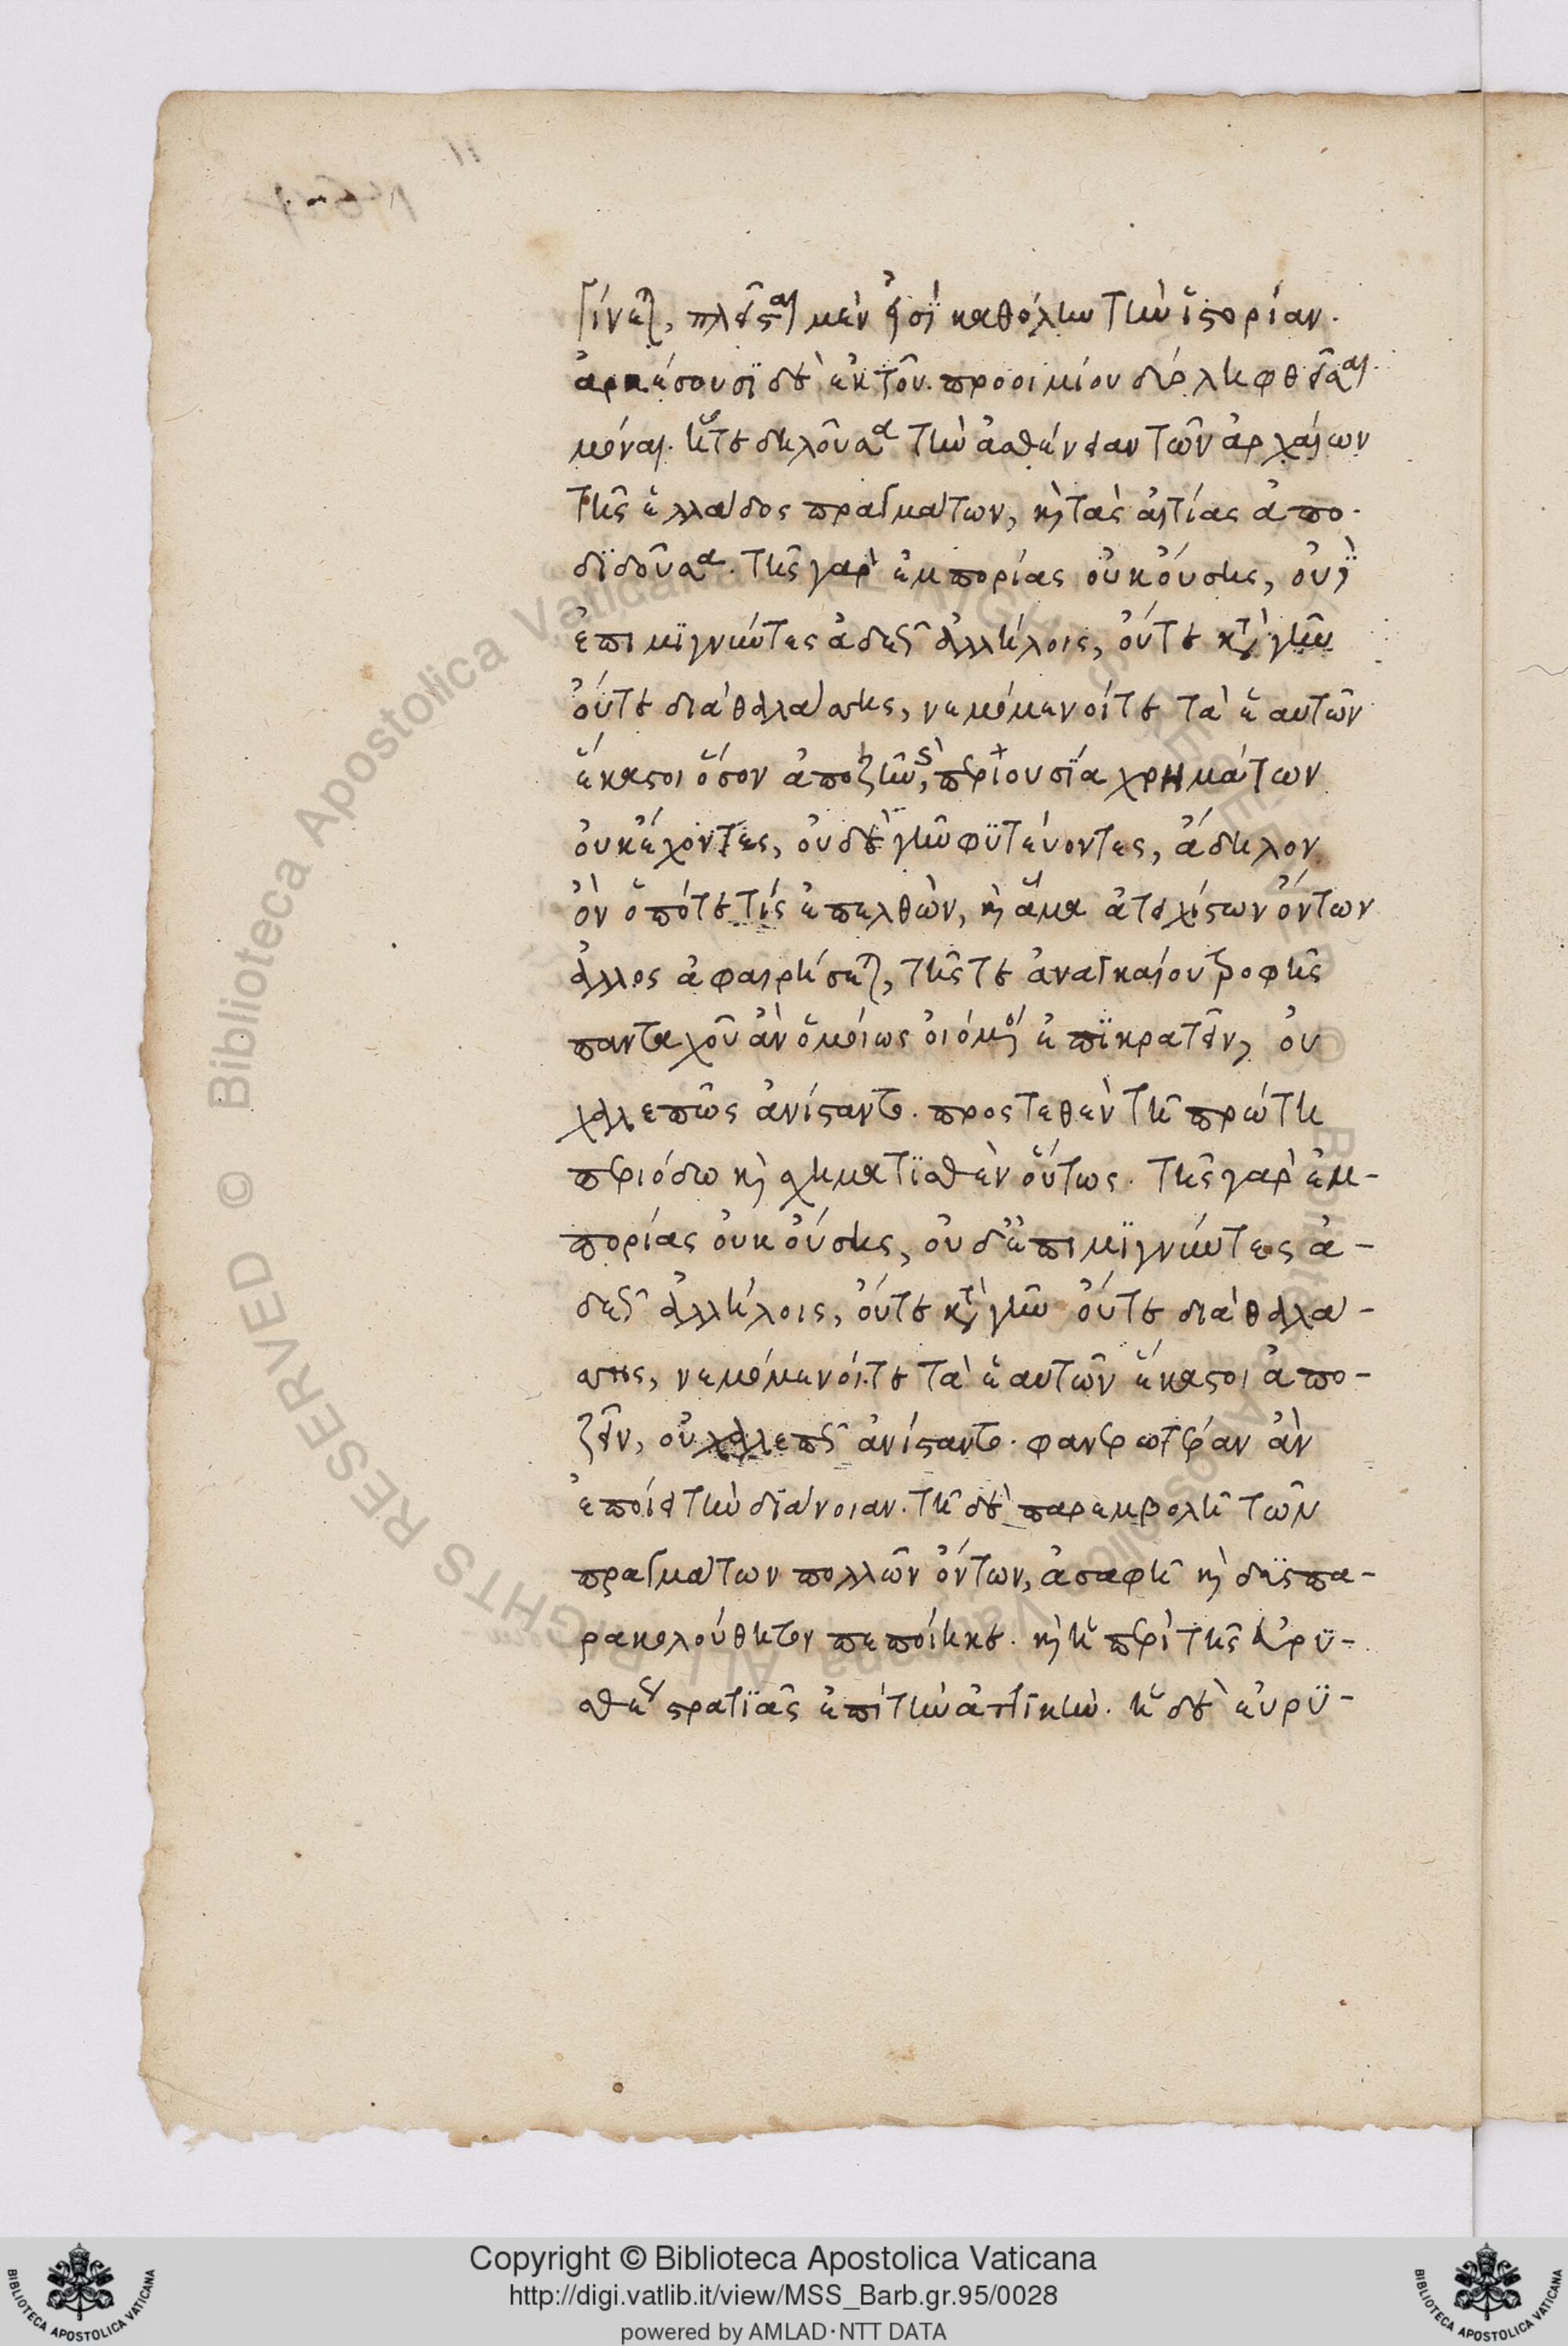 γίνεται, πλεῖσται μέν εἰσι καθόλην τὴν ἱστορίαν.
ἀρκέσουσι δὲ ἐκ τοῦ προοιμίου δύο ληφθεῖσαι
μόναι. ἥτε δηλοῦσα τὴν ἀσθένειαν τῶν ἀρχαίων
τῆς ἑλλάδος πραγμάτων, καὶ τὰς αἰτίας ἀπο-
διδοῦσα. τῆς γὰρ ἐμπορίας οὐκ οὔσης, οὐδ'
ἐπιμιγνύντες ἀδεῶς ἀλλήλοις, οὔτε κατὰ γῆν
οὔτε διὰ θαλάσσης, νεμόμενοί τε τὰ ἑαυτῶν
ἕκαστοι ὅσον ἀποζῆν, καὶ περιουσία χρημάτων
οὐκ ἔχοντες, οὐδὲ γῆν φυτεύοντες, ἄδηλον
ὂν ὁπότε τίς ἐπελθὼν, καὶ ἅμα ἀτειχίστων ὄντων
ἄλλος ἀφαιρήσεται, τῆς τε ἀναγκαίου τροφῆς
πανταχοῦ ἂν ὁμοίως οἰόμενοι ἐπικρατεῖν, οὐ
χαλεπῶς ἀνίσταντο. προστεθὲν τῆ πρώτη
περιόδω καὶ σχηματισθὲν οὕτως. τῆς γὰρ ἐμ-
πορίας οὐκ οὔσης, οὐδ' ἐπιμιγνύντες ἀ-
δεῶς ἀλλήλοις, οὔτε κατὰ γῆν οὔτε διὰ θαλά-
σσης, νεμόμενοί τε τὰ ἑαυτῶν ἕκαστοι ἀπο-
ζεῖν, οὐ χαλεπῶς ἀνίσταντο. φανερωτέραν ἂν
ἐποίει τὴν διάνοιαν. τῆ δὲ παρεμβολῆ τῶν
πραγμάτων πολλῶν ὄντων, ἀσαφῆ καὶ δυσπα-
ρακολούθητον πεποίηκε. καὶ ἡ περὶ τῆς εὐρυ-
σθέως στρατιᾶς ἐπὶ τὴν ἀττικὴν. ἡ δὲ εὐρυ-
Copyright © Biblioteca Apostolica Vaticana
http://digi.vatlib.it/view/MSS_Barb.gr.95/0028
powered by AMLAD·NTT DATA